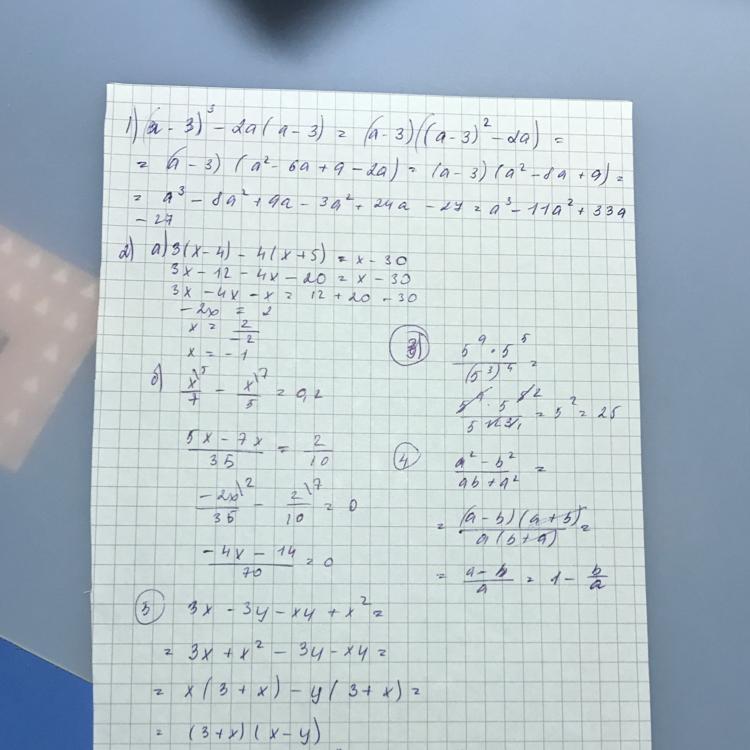 1) (a - 3)³ - 2a(a - 3) = (a - 3)((a - 3)² - 2a) =
= (a - 3)(a² - 6a + 9 - 2a) = (a - 3)(a² - 8a + 9) =
= a³ - 8a² + 9a - 3a² + 24a - 27 = a³ - 11a² + 33a
- 27
2) а) 3(x - 4) - 4(x + 5) = x - 30
3x - 12 - 4x - 20 = x - 30
3x - 4x - x = 12 + 20 - 30
-2x = 2
x = 2/-2
x = -1
б) x\5/7 - x\7/5 = 0,2
(5x - 7x)/35 = 2/10
-2x\2/35 - 2\7/10 = 0
(-4x - 14)/70 = 0
3) (5⁹ · 5⁵)/(5³)⁴ =
= 5² = 25
4 (a² - b²)/(ab + a²) =
= (a - b)(a + b)/a(b + a) =
= (a - b)/a = 1 - b/a
5 3x - 3y - xy + x² =
= 3x + x² - 3y - xy =
= x(3 + x) - y(3 + x) =
= (3 + x)(x - y)